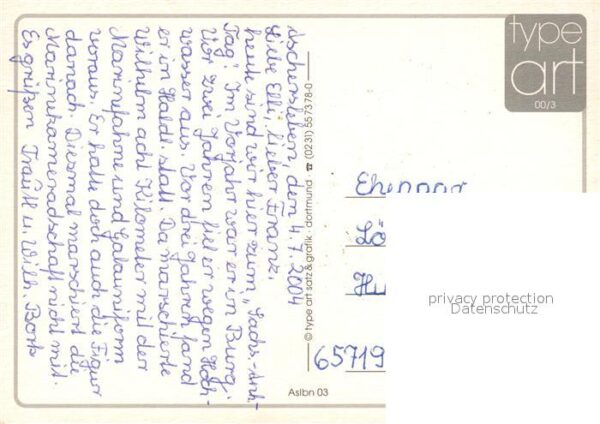 Aschersleben, den 4.7.2004
Liebe Elli, lieber Franz.
heute sind wir hier zum „Sachs.-Anh.-
Tag". Im Vorjahr war er in Burg.
Vor zwei Jahren fiel er wegen Hoch-
wasser aus. Vor drei Jahren fand
er in Haldl. statt. Da marschierte
Wilhelm acht Kilometer mit der
Marinefahne und Galauniform
voraus. Er hatte doch auch die Figur
danach. Diesmal marschiert die
Marinekameradschaft nicht mit.
Es grüßen Trautl u. Wilh. Bork
© type art satz & grafik · dortmund ☎ (0231) 55 73 78-0
type
art
00/3
Ehepaar
Lö
Hu
65719
privacy protection
Datenschutz
Aslbn 03